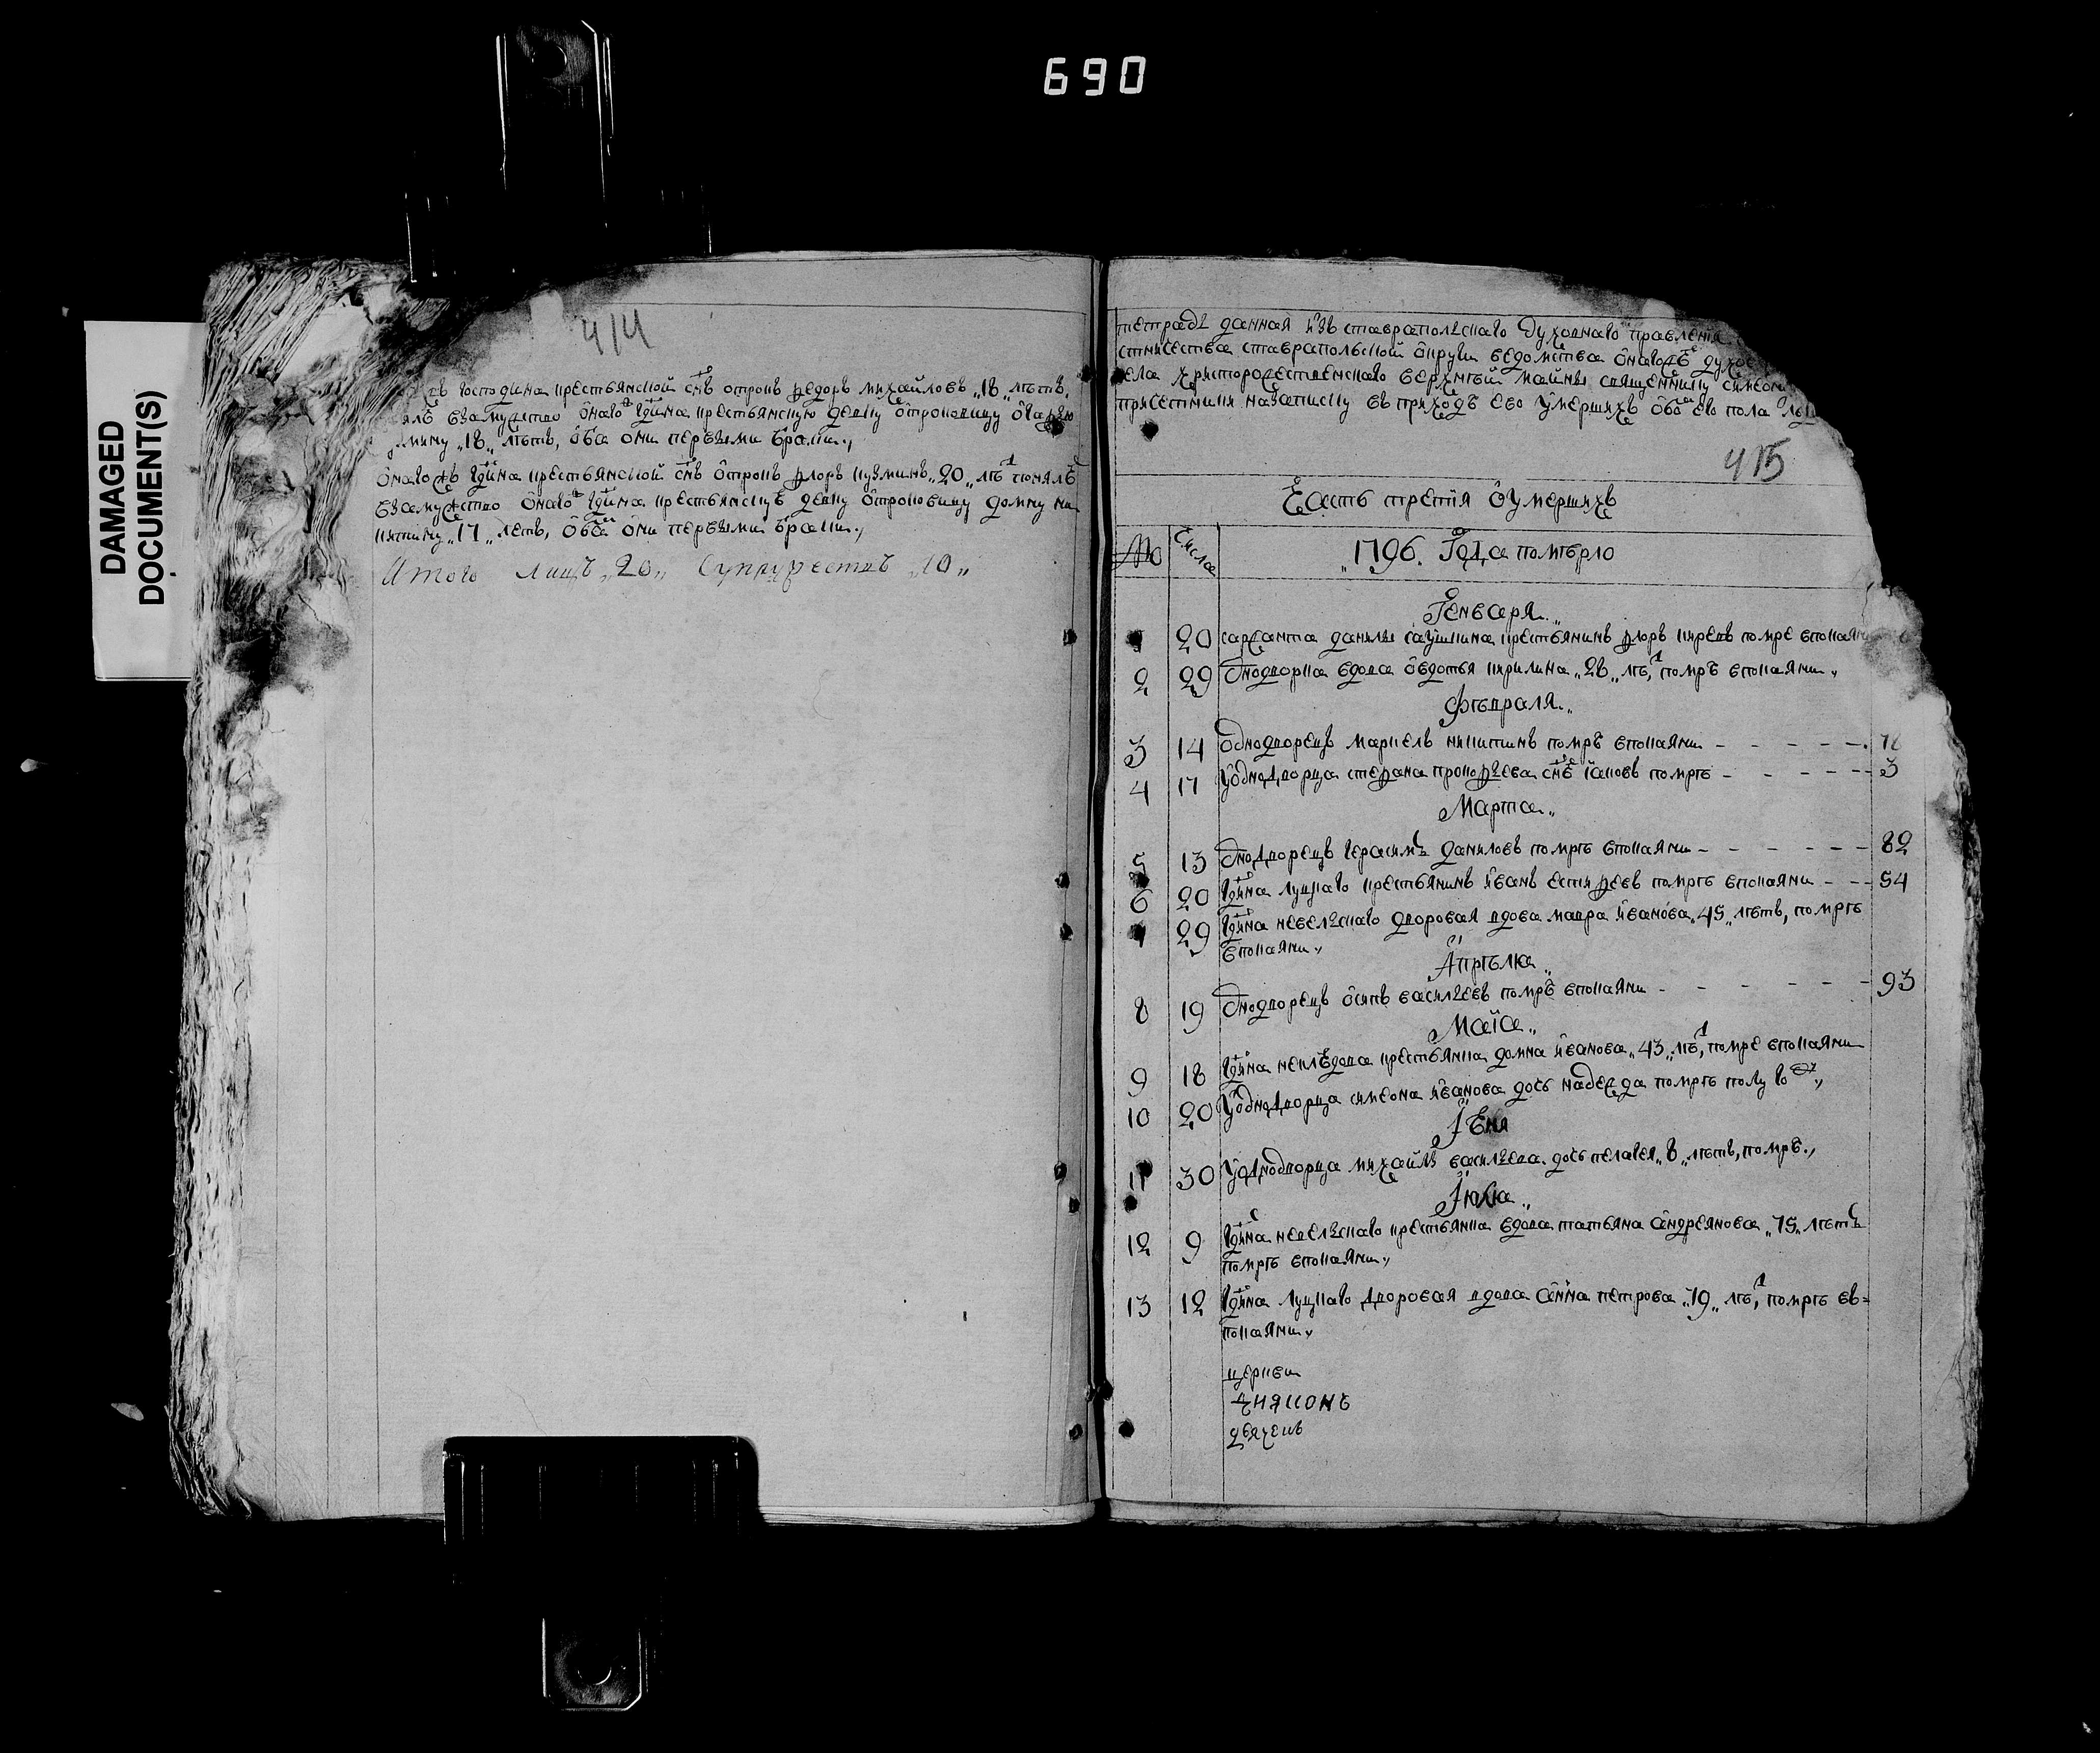 690
DAMAGED
DOCUMENT(S)
414
господина крестьянской снъ отрокъ федоръ михайловъ „18„ лѣтъ,
взамужство онаго гдина крестьянскую девку отроковицу
„18„ лѣтъ, оба они первыми браки.,
онаго гдина крестьянской снъ отрокъ флоръ кузминъ „20„ лѣ понялъ
взамужство онаго гдина крестьянску девку отроковицу домну ни
китину „17„ летъ, оба они первыми браки.,
Итого лицъ „20„ Супружествъ „10„
тетрадь данная изъ ставрапольскаго духовнаго правления
ставрапольской округи ведомства онагожъ
села христорождественскаго верхней майны священнику симеону
причетники назаписку въприходѣ ево умершихъ обоего пола
415
Часть третїя оумершихъ
№ Числа „1796. Года помѣрло
Генваря.„
1 20 саржанта данилы крестьянинъ флоръ помре впокаянии
2 29 однодворка вдова овдотья кирилина „28„ лѣ, помрѣ впокаянии.,
Фѣвраля.„
3 14 однодворецъ маркелъ никитинъ помрѣ впокаянии – – – – – 78
4 17 Уоднодворца стефана прокофьева снъ іаковъ помрѣ – – – – – 3
Марта.„
5 13 однодворецъ герасимъ даниловъ помрѣ впокаянии – – – – – – 82
6 20 гдина луцкаго крестьянинъ иванъ естифеевъ помрѣ впокаянии – – – 54
7 29 гдина невельскаго дворовая вдова мавра иванова „45„ лѣтъ, помрѣ
впокаянии.,
Апрѣля„
8 19 однодворецъ осипъ васильевъ помрѣ впокаянии – – – – – 93
Маїа„
9 18 гдина неклѣдова крестьянка домна иванова „43„ лѣ, помре впокаянии
10 20 Уоднодворца симеона иванова дочь надежда помрѣ полу го
Іюня
11 30 Уоднодворца михайлы васильева дочь пелагея „8„ лѣтъ, помрѣ.,
Іюля„
12 9 гдина невельскаго крестьянка вдова татьяна андреянова „75„ лѣтъ
помрѣ впокаянии.,
13 12 гдина луцкаго дворовая вдова анна петрова „79„ лѣ, помрѣ въ=
покаянии.,
церкви
дияконъ
дьячекъ